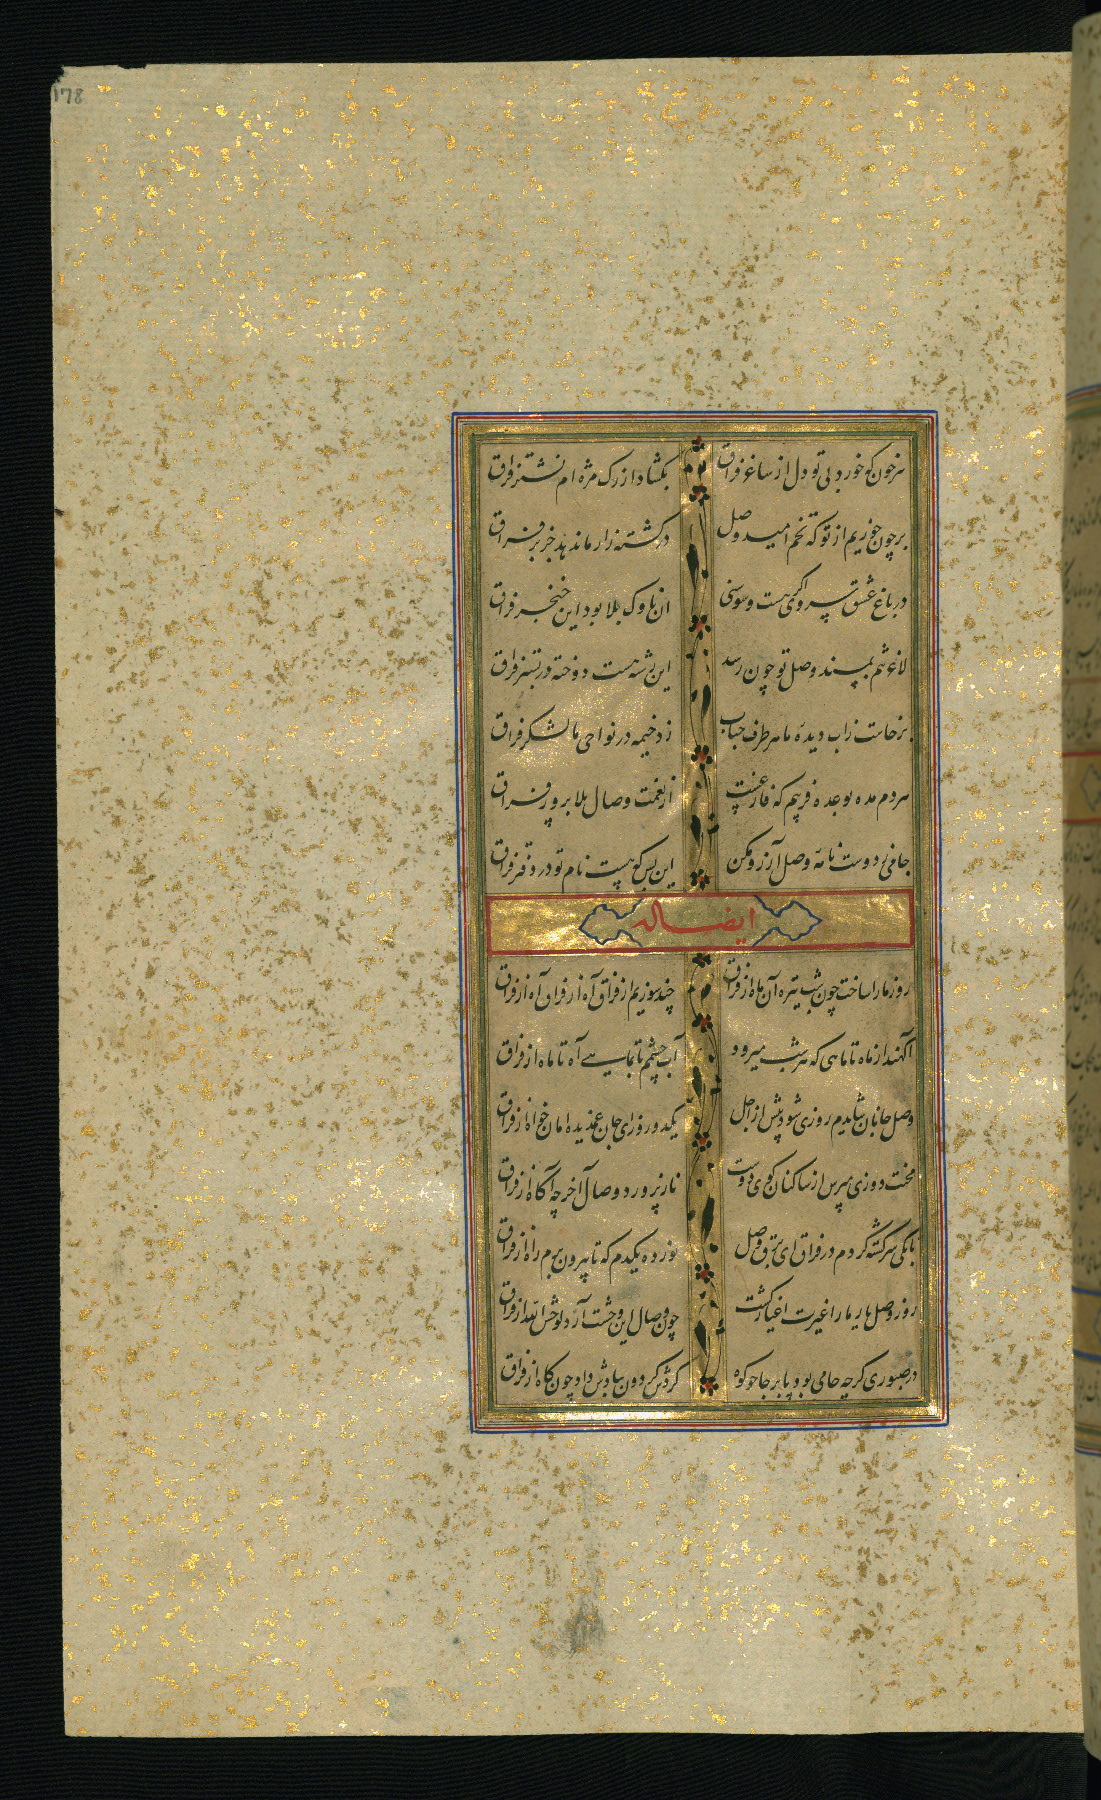 178
هرخون که خورد بی تو دل از ساغر فراق
بکشاد از رک مژه ام نشتر فراق
برچون خوریم از تو که تخم امید وصل
در کشته زار ما ندهد جز بر فراق
در باغ عشق سرو اکر هست و سوسنی
ان ناوک بلا بود این خنجر فراق
لاغر تنم بپسند وصل تو چون رسد
این رشته هست دوخته در بستر فراق
برخاست زاب دیده ما هر طرف حباب
زد خیمه در نواحی ما لشکر فراق
هردم مده بوعده فریبم که فارغست
از نعمت وصال بلا پرور فراق
جامی ز دوست نامه وصل آرزو مکن
این بس که هست نام تو در دفتر فراق
ایضا له
روز ما را ساخت چون شب تیره آن ماه از فراق
چند سوزیم از فراق آه از فراق آه از فراق
اکهند از ماه تا ماهی که هر شب میرود
آب چشمم تا بماهی آه تا ماه از فراق
وصل جانان شایدم روزی شود پیش از اجل
یکدو روزای جان غمدیده امان خواه از فراق
محنت دوزخ مپرس از ساکنان کوی دوست
ناز پرورد وصال آخر چه آکاه از فراق
بانکی سرکشته کردم در فراق ای برق وصل
نور ده یکدم که تا بیرون برم راه از فراق
روز وصل یار ما را غیرت اغیار کشت
چون وصال این وحشت آرد لوحش الله از فراق
در صبوری کرچه جامی بود پا بر جا چو کوه
کردش کردون ببادش داد چون کاه از فراق